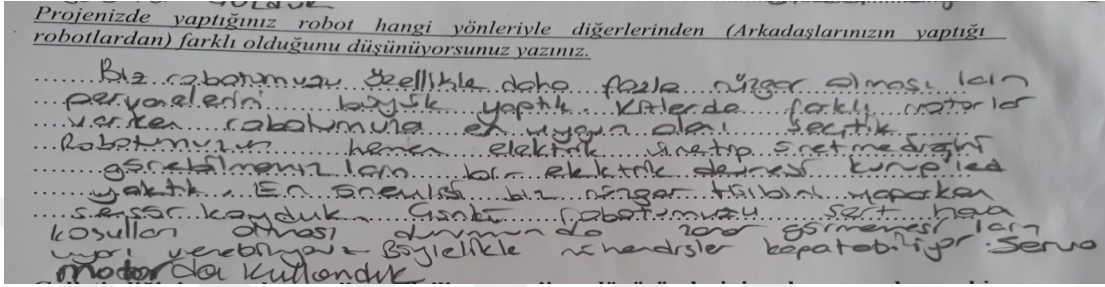 Projenizde yaptığınız robot hangi yönleriyle diğerlerinden (Arkadaşlarınızın yaptığı
robotlardan) farklı olduğunu düşünüyorsunuz yazınız.
Biz robotumuzu özellikle daha fazla rüzgar alması için
pervanelerini büyük yaptık. Kitlerde farklı motorlar
varken robotumuza en uygun olanı seçtik
Robotumuzun hemen elektrik üretip üretmediğini
görebilmemiz için bir elektrik devresi kurup led
yaktık. En önemlisi biz rüzgar tribini yaparken
sensör koyduk. Çünkü robotumuzu sert hava
koşulları olması durumunda zarar görmemesi için
uyarı verebiliyor. Böylelikle mühendisler kapatabiliyor. Servo
motor da kullandık